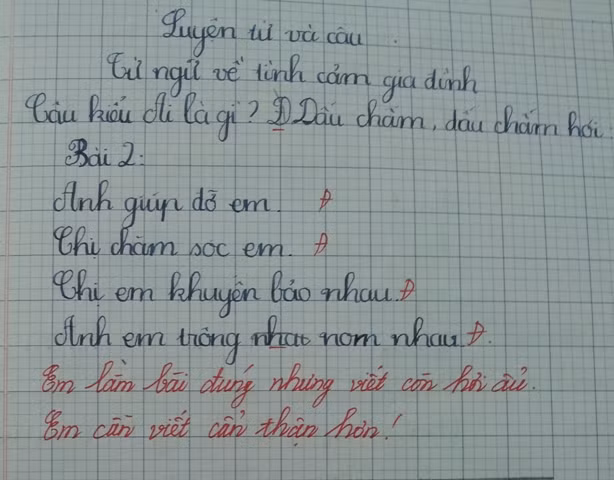 Luyện từ và câu
Từ ngữ về tình cảm gia đình
Câu kiểu Ai là gì? Đ Dấu chấm, dấu chấm hỏi
Bài 2:
Anh giúp đỡ em. Đ
Chị chăm sóc em. Đ
Chị em khuyên bảo nhau. Đ
Anh em trông nhau nom nhau. Đ
Em làm bài đúng nhưng viết còn hơi ẩu.
Em cần viết cẩn thận hơn!